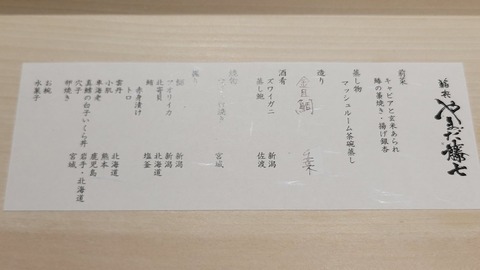 前菜
キャビアと玄米あられ
鰆の藁焼き・揚げ銀杏
蒸し物
マッシュルーム茶碗蒸し
造り
金目鯛 千葉
酒肴
ズワイガニ 新潟
蒸し鮑 佐渡
焼物
宮城
握り
鰤 新潟
アオリイカ 新潟
北寄貝 北海道
鮪 塩釜
赤身漬け
トロ
雲丹 北海道
小肌 熊本
車海老 鹿児島
真鱈の白子いくら丼 岩手・北海道
穴子 宮城
卵焼き
お椀
水菓子